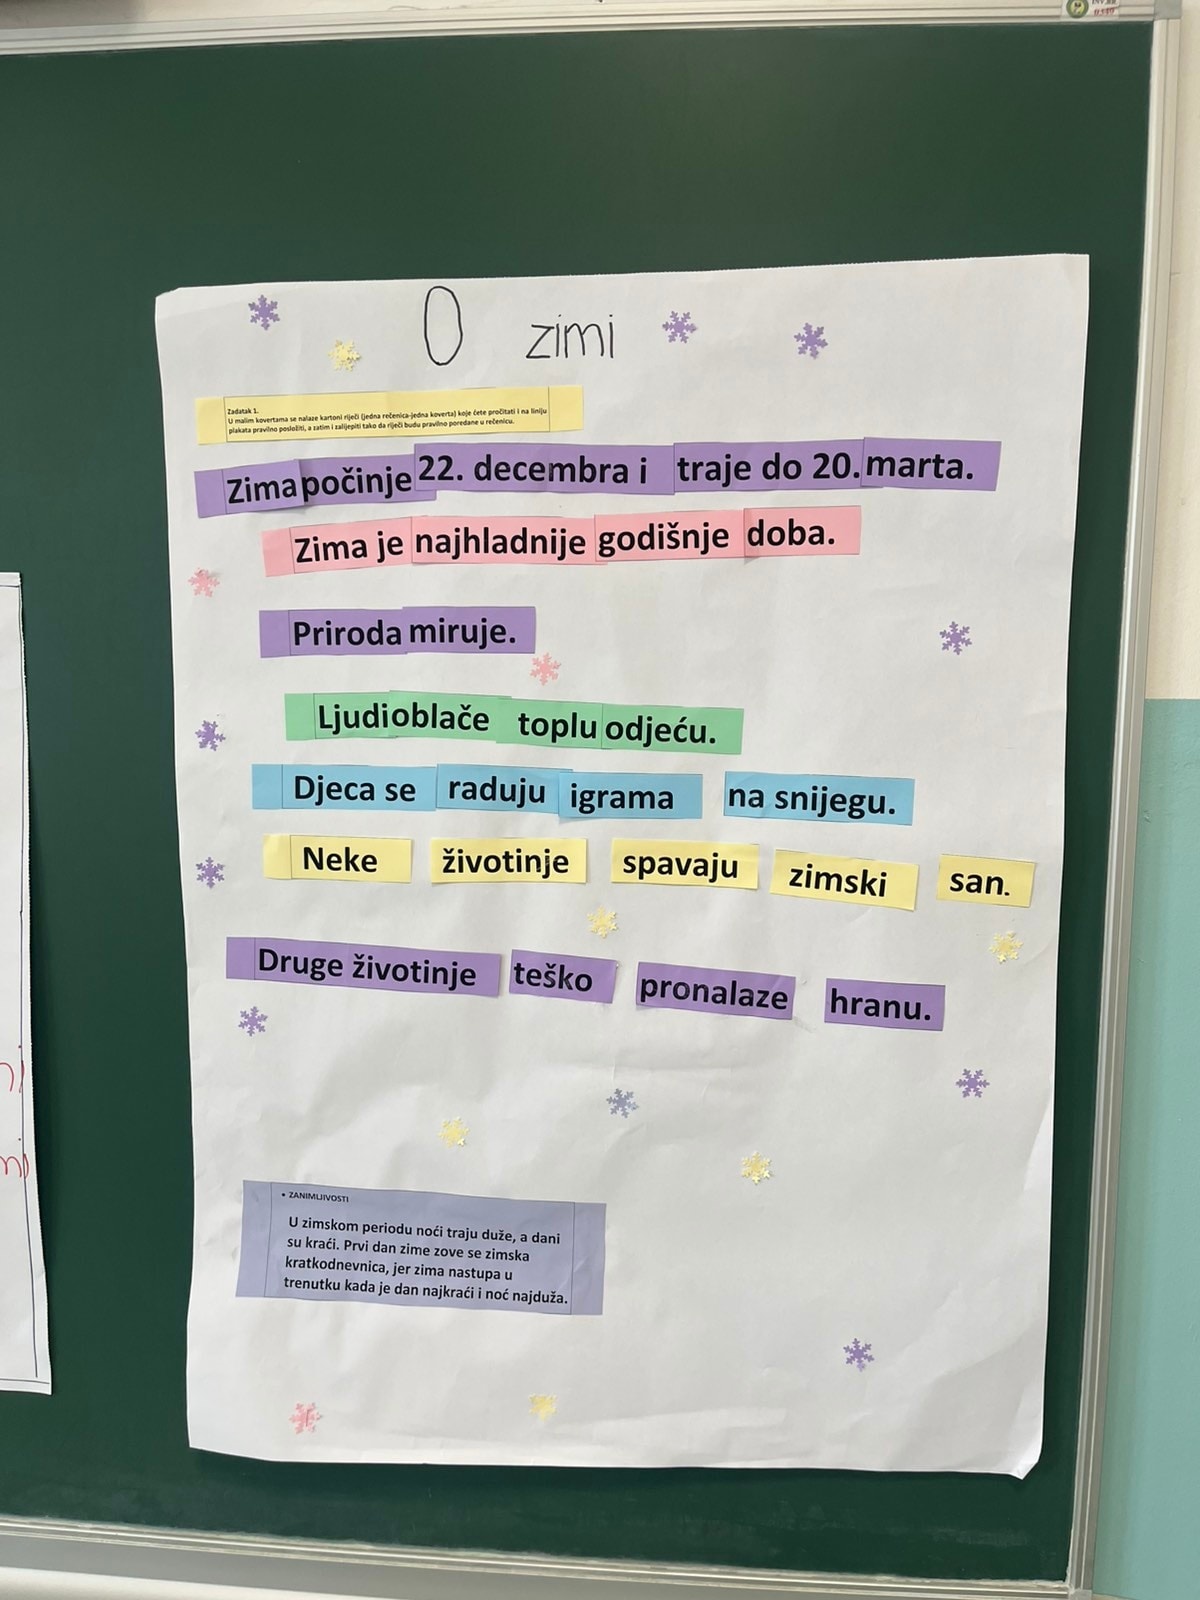 O zimi
Zadatak 1.
U malim kovertama se nalaze kartoni riječi (jedna rečenica-jedna koverta) koje ćete pročitati i na liniju
plakata pravilno posložiti, a zatim i zalijepiti tako da riječi budu pravilno poredane u rečenicu.
Zima počinje 22. decembra i traje do 20. marta.
Zima je najhladnije godišnje doba.
Priroda miruje.
Ljudi oblače toplu odjeću.
Djeca se raduju igrama na snijegu.
Neke životinje spavaju zimski san.
Druge životinje teško pronalaze hranu.
• ZANIMLJIVOSTI
U zimskom periodu noći traju duže, a dani
su kraći. Prvi dan zime zove se zimska
kratkodnevnica, jer zima nastupa u
trenutku kada je dan najkraći i noć najduža.